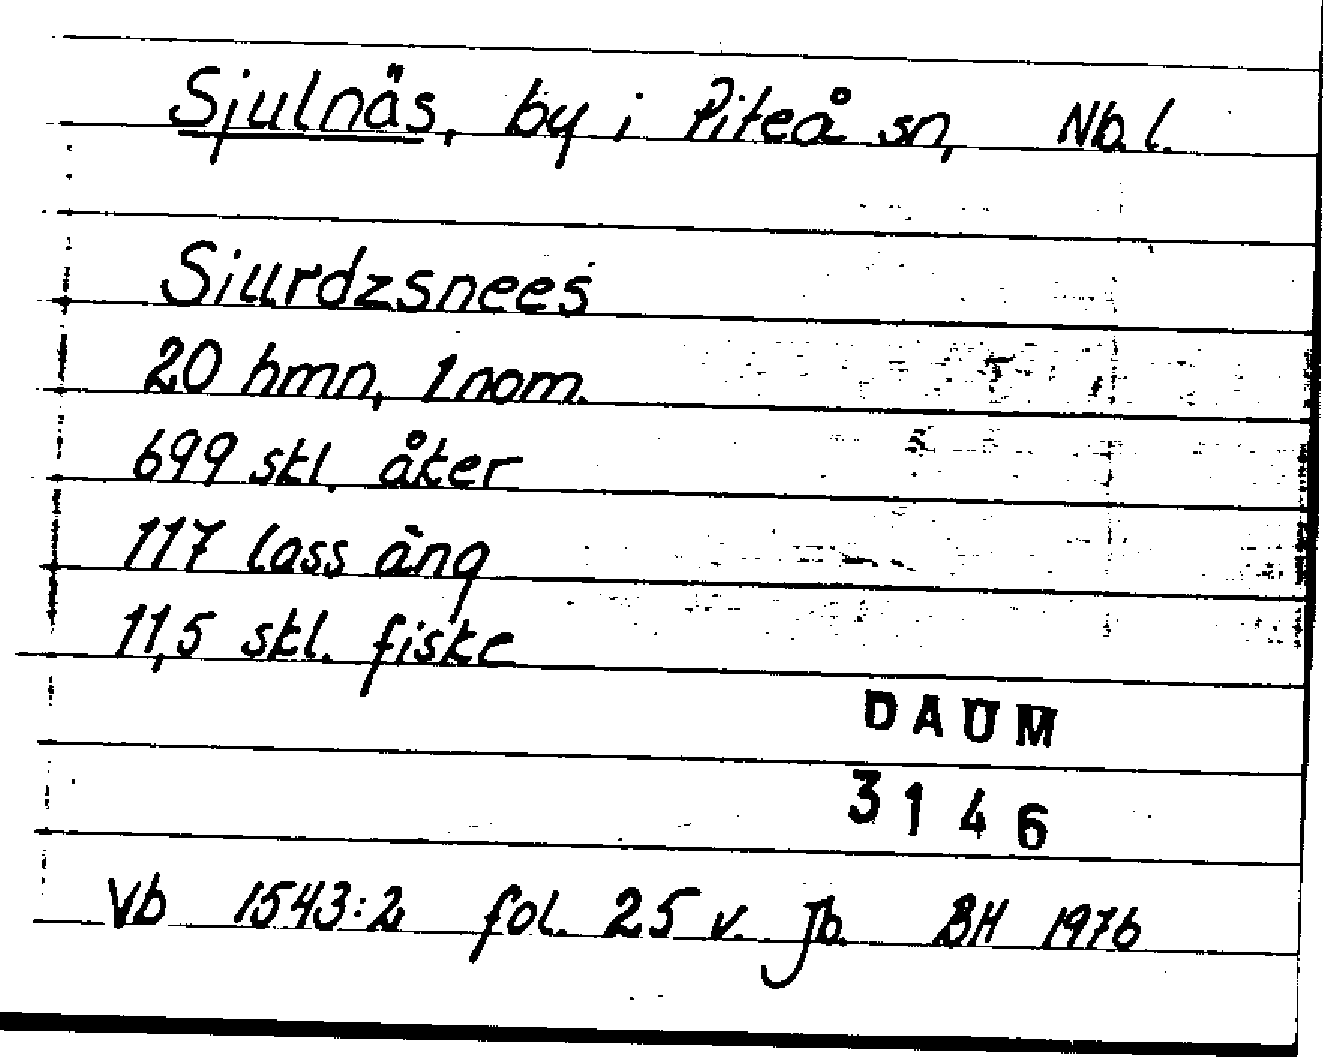 Sjulnäs, by i Piteå sn, Nb. l.
Siurdzsnees
20 hmn, 1 nom.
699 skl. åker
117 lass äng
11,5 skl. fiske
DAUM
3146
Vb 1543:2 fol. 25 v. Jb. BH 1976